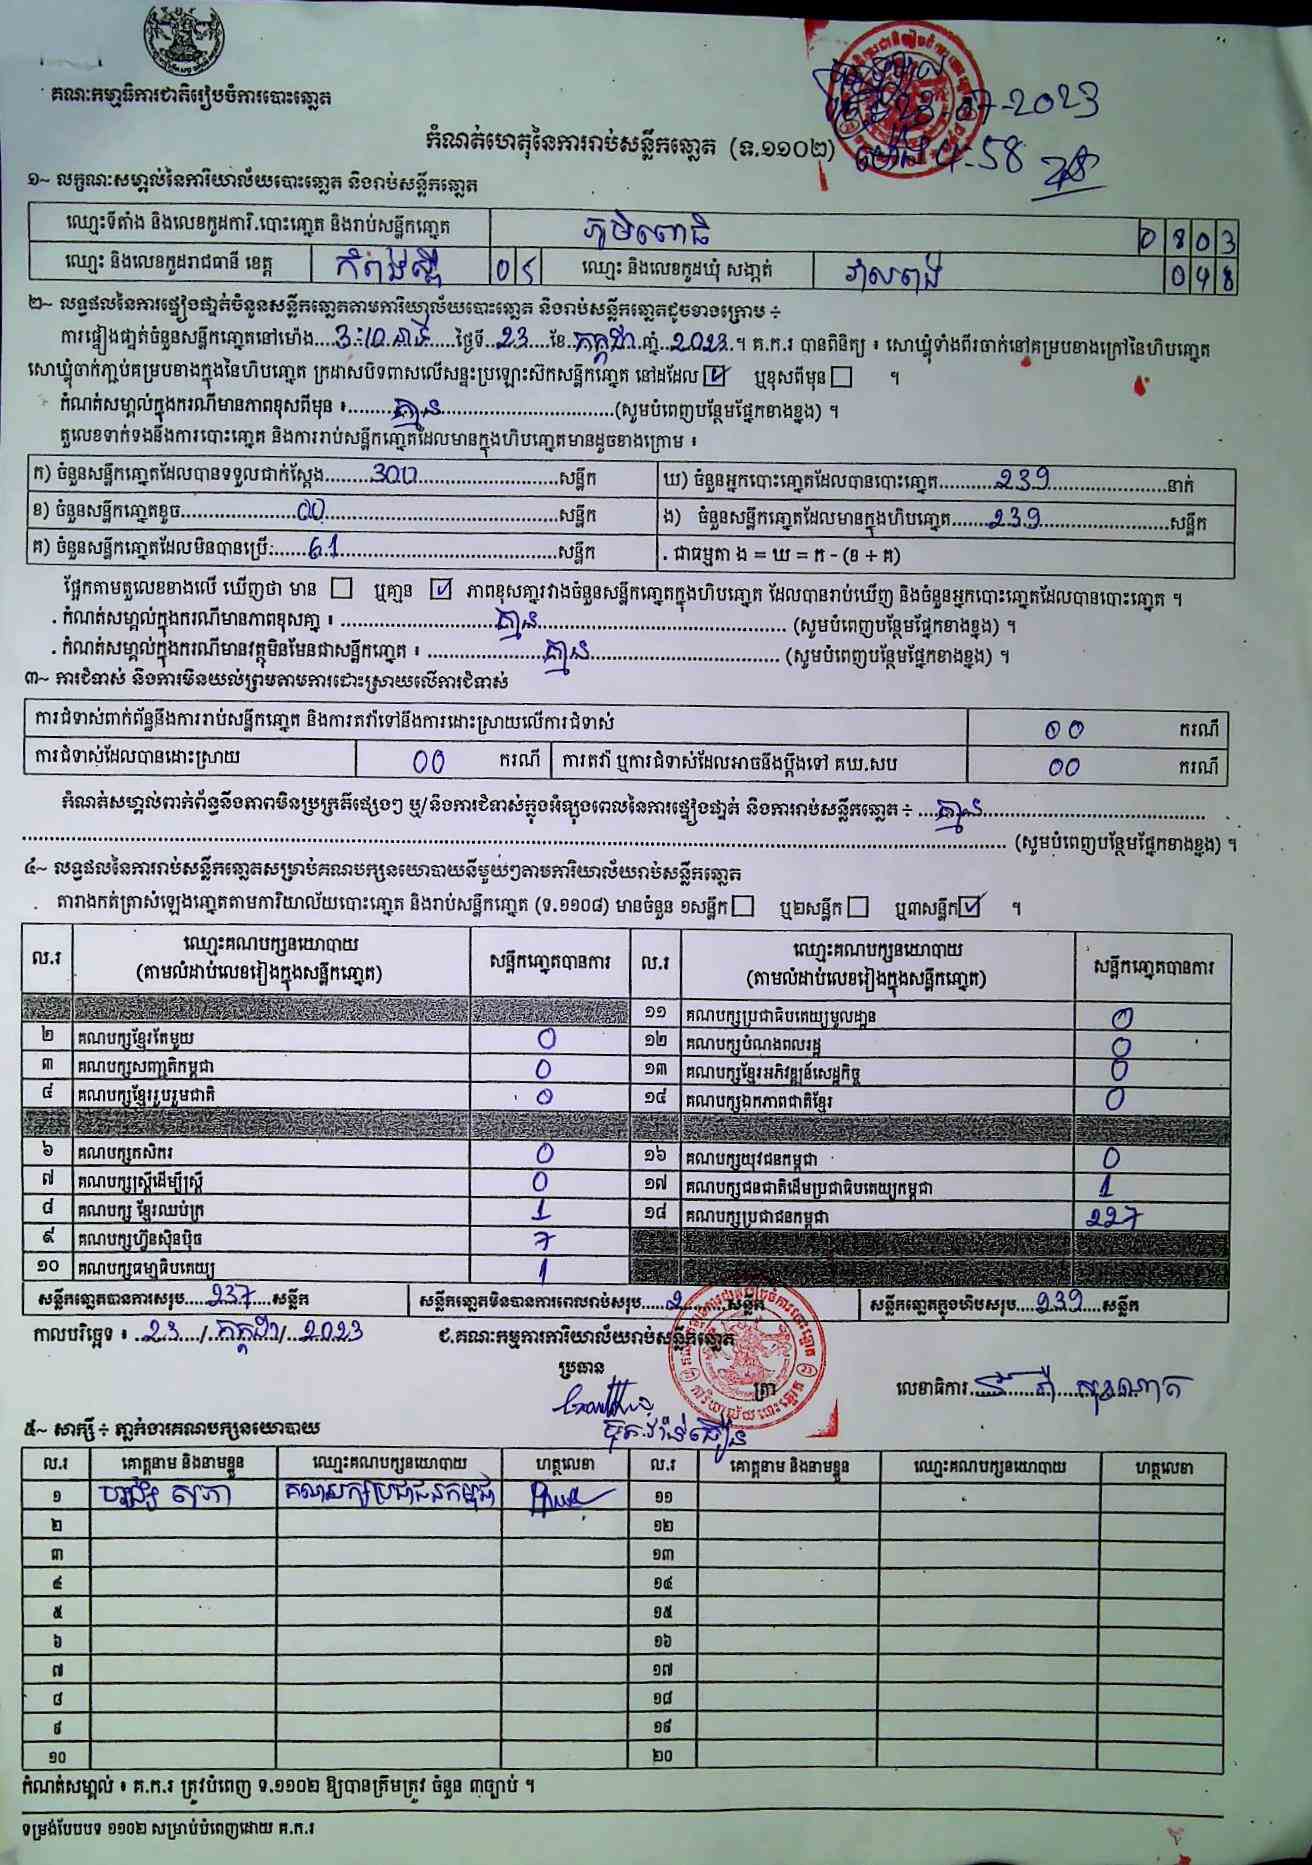 គណៈកម្មាធិការជាតិរៀបចំការបោះឆ្នោត
23-07-2023
ម៉ោង 4-58
កំណត់ហេតុនៃការរាប់សន្លឹកឆ្នោត (ទ.១១០២)
១~ លក្ខណៈសម្គាល់នៃការិយាល័យបោះឆ្នោត និងរាប់សន្លឹកឆ្នោត
ឈ្មោះទីតាំង និងលេខកូដការិ.បោះឆ្នោត និងរាប់សន្លឹកឆ្នោត ភូមិពោធិ 0803
ឈ្មោះ និងលេខកូដរាជធានី ខេត្ត កំពង់ស្ពឺ 05 ឈ្មោះ និងលេខកូដឃុំ សង្កាត់ វាលពង់ 048
២~ លទ្ធផលនៃការផ្ទៀងផ្ទាត់ចំនួនសន្លឹកឆ្នោតតាមការិយាល័យបោះឆ្នោត និងរាប់សន្លឹកឆ្នោតដូចខាងក្រោម ៖
ការផ្ទៀងផ្ទាត់ចំនួនសន្លឹកឆ្នោតនៅម៉ោង....3:10 នាទី.....ថ្ងៃទី..23....ខែ.កក្កដា.ឆ្នាំ..2023.។ គ.ក.រ បានពិនិត្យ ៖ សោឃ្លុំទាំងពីរចាក់នៅគម្របខាងក្រៅនៃហិបឆ្នោត
សោឃ្លុំចាក់ភ្ជាប់គម្របខាងក្នុងនៃហិបឆ្នោត ក្រដាសបិទពាសលើសន្ទះប្រឡោះស៊កសន្លឹកឆ្នោត នៅដដែល ☑ ឬខុសពីមុន ☐ ។
កំណត់សម្គាល់ក្នុងករណីមានភាពខុសពីមុន ៖........គ្មាន............................(សូមបំពេញបន្ថែមផ្នែកខាងខ្នង) ។
តួលេខទាក់ទងនឹងការបោះឆ្នោត និងការរាប់សន្លឹកឆ្នោតដែលមានក្នុងហិបឆ្នោតមានដូចខាងក្រោម ៖
ក) ចំនួនសន្លឹកឆ្នោតដែលបានទទួលជាក់ស្តែង........300.......................សន្លឹក ឃ) ចំនួនអ្នកបោះឆ្នោតដែលបានបោះឆ្នោត..........239.......................នាក់
ខ) ចំនួនសន្លឹកឆ្នោតខូច.....................00...................................សន្លឹក ង) ចំនួនសន្លឹកឆ្នោតដែលមានក្នុងហិបឆ្នោត.......239.......................សន្លឹក
គ) ចំនួនសន្លឹកឆ្នោតដែលមិនបានប្រើ:......61...................................សន្លឹក . ជាធម្មតា ង = ឃ = ក - (ខ + គ)
ផ្អែកតាមតួលេខខាងលើ ឃើញថា មាន ☐ ឬគ្មាន ☑ ភាពខុសគ្នារវាងចំនួនសន្លឹកឆ្នោតក្នុងហិបឆ្នោត ដែលបានរាប់ឃើញ និងចំនួនអ្នកបោះឆ្នោតដែលបានបោះឆ្នោត ។
. កំណត់សម្គាល់ក្នុងករណីមានភាពខុសគ្នា ៖ .........................គ្មាន........................................ (សូមបំពេញបន្ថែមផ្នែកខាងខ្នង) ។
. កំណត់សម្គាល់ក្នុងករណីមានវត្ថុមិនមែនជាសន្លឹកឆ្នោត ៖ ....................គ្មាន.............................. (សូមបំពេញបន្ថែមផ្នែកខាងខ្នង) ។
៣~ ការជំទាស់ និងការមិនយល់ព្រមតាមការដោះស្រាយលើការជំទាស់
ការជំទាស់ពាក់ព័ន្ធនឹងការរាប់សន្លឹកឆ្នោត និងការតវ៉ាទៅនឹងការដោះស្រាយលើការជំទាស់ 00 ករណី
ការជំទាស់ដែលបានដោះស្រាយ 00 ករណី ការតវ៉ា ឬការជំទាស់ដែលអាចនឹងប្តឹងទៅ គឃ.សប 00 ករណី
កំណត់សម្គាល់ពាក់ព័ន្ធនឹងភាពមិនប្រក្រតីផ្សេងៗ ឬ/និងការជំទាស់ក្នុងអំឡុងពេលនៃការផ្ទៀងផ្ទាត់ និងការរាប់សន្លឹកឆ្នោត ៖ ...គ្មាន...............................
(សូមបំពេញបន្ថែមផ្នែកខាងខ្នង) ។
៤~ លទ្ធផលនៃការរាប់សន្លឹកឆ្នោតសម្រាប់គណបក្សនយោបាយនីមួយៗតាមការិយាល័យរាប់សន្លឹកឆ្នោត
តារាងកត់ត្រាសំឡេងឆ្នោតតាមការិយាល័យបោះឆ្នោត និងរាប់សន្លឹកឆ្នោត (ទ.១១០៨) មានចំនួន ១សន្លឹក ☐ ឬ២សន្លឹក ☐ ឬ៣សន្លឹក ☑ ។
ល.រ ឈ្មោះគណបក្សនយោបាយ (តាមលំដាប់លេខរៀងក្នុងសន្លឹកឆ្នោត) សន្លឹកឆ្នោតបានការ ល.រ ឈ្មោះគណបក្សនយោបាយ (តាមលំដាប់លេខរៀងក្នុងសន្លឹកឆ្នោត) សន្លឹកឆ្នោតបានការ
១១ គណបក្សប្រជាធិបតេយ្យមូលដ្ឋាន 0
២ គណបក្សខ្មែរតែមួយ 0 ១២ គណបក្សបំណងពលរដ្ឋ 0
៣ គណបក្សសញ្ជាតិកម្ពុជា 0 ១៣ គណបក្សខ្មែរអភិវឌ្ឍន៍សេដ្ឋកិច្ច 0
៤ គណបក្សខ្មែររួបរួមជាតិ 0 ១៤ គណបក្សឯកភាពជាតិខ្មែរ 0
៦ គណបក្សកសិករ 0 ១៦ គណបក្សយុវជនកម្ពុជា 0
៧ គណបក្សស្ត្រីដើម្បីស្ត្រី 0 ១៧ គណបក្សជនជាតិដើមប្រជាធិបតេយ្យកម្ពុជា 1
៨ គណបក្ស ខ្មែរឈប់ក្រ 1 ១៨ គណបក្សប្រជាជនកម្ពុជា 227
៩ គណបក្សហ៊្វុនស៊ិនប៉ិច 7
១០ គណបក្សធម្មាធិបតេយ្យ 1
សន្លឹកឆ្នោតបានការសរុប.....237....សន្លឹក សន្លឹកឆ្នោតមិនបានការពេលរាប់សរុប.....2......សន្លឹក សន្លឹកឆ្នោតក្នុងហិបសរុប....239....សន្លឹក
កាលបរិច្ឆេទ ៖ ..23..../..កក្កដា../...2023 ជ.គណៈកម្មការការិយាល័យរាប់សន្លឹកឆ្នោត
ប្រធាន ត្រា លេខាធិការ
៥~ សាក្សី ៖ ភ្នាក់ងារគណបក្សនយោបាយ
ល.រ គោត្តនាម និងនាមខ្លួន ឈ្មោះគណបក្សនយោបាយ ហត្ថលេខា ល.រ គោត្តនាម និងនាមខ្លួន ឈ្មោះគណបក្សនយោបាយ ហត្ថលេខា
១ សុភា គណបក្សប្រជាជនកម្ពុជា ១១
២ ១២
៣ ១៣
៤ ១៤
៥ ១៥
៦ ១៦
៧ ១៧
៨ ១៨
៩ ១៩
១០ ២០
កំណត់សម្គាល់ ៖ គ.ក.រ ត្រូវបំពេញ ទ.១១០២ ឱ្យបានត្រឹមត្រូវ ចំនួន ៣ច្បាប់ ។
ទម្រង់បែបបទ ១១០២ សម្រាប់បំពេញដោយ គ.ក.រ